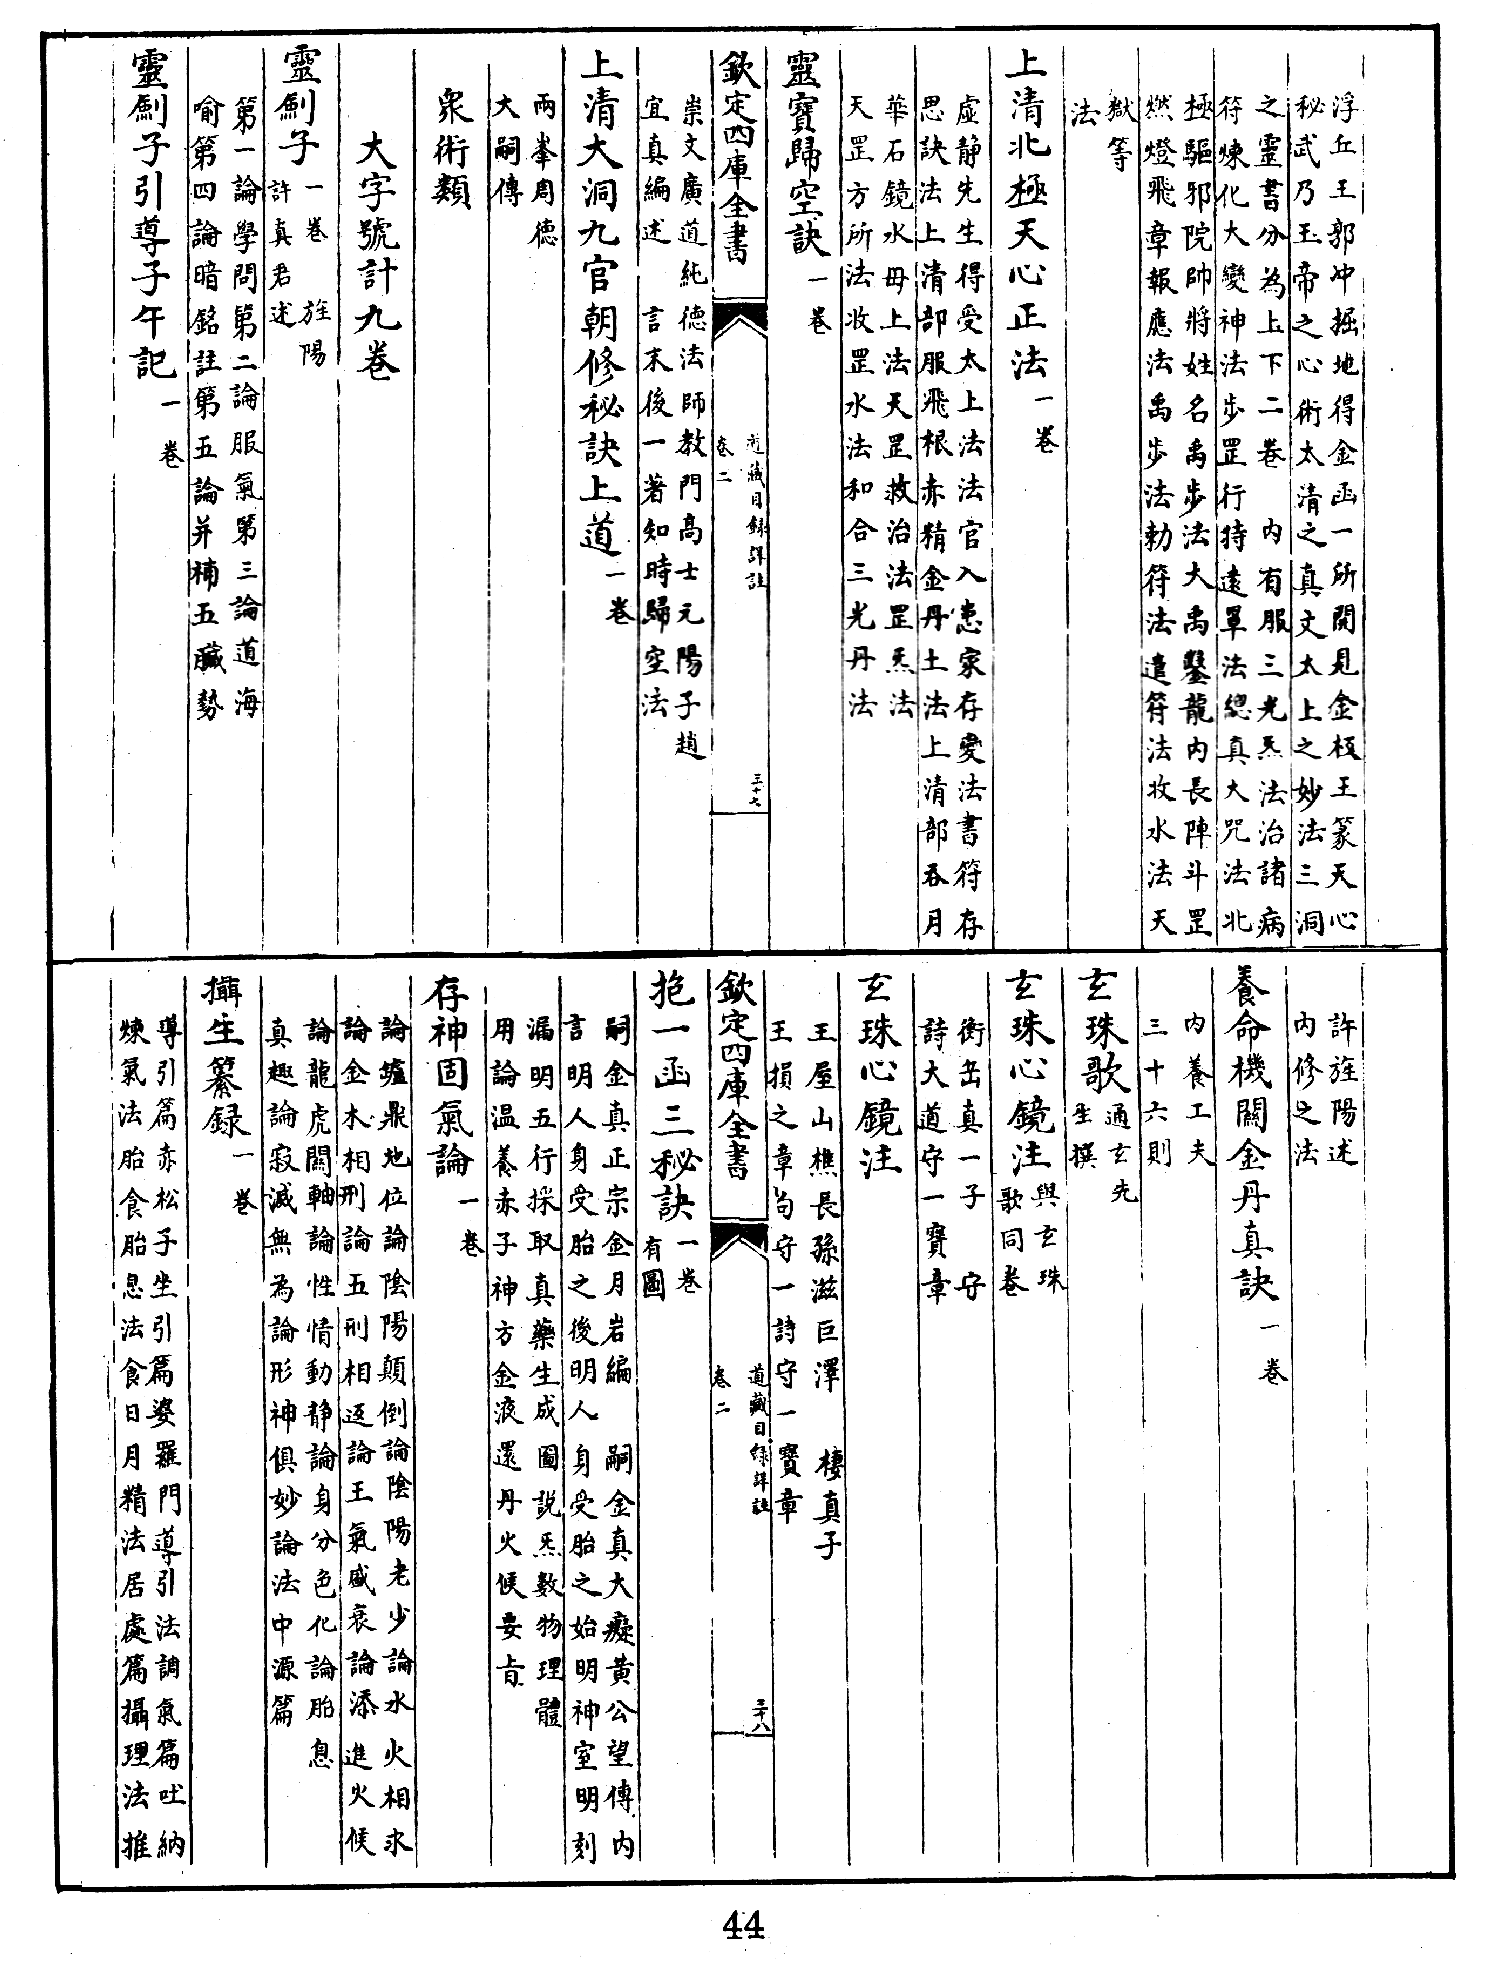 浮丘王郭冲掘地得金函一所開見金板玉篆天心
秘武乃玉帝之心術太清之真文太上之妙法三洞
之靈書分為上下二卷　内有服三光炁法治諸病
符煉化大變神法步罡行持遠罩法總真大咒法北
極驅邪院帥將姓名禹步法大禹鑿龍内長陣斗罡
燃燈飛章報應法禹步法勅符法遣符法收水法天
獄等
法
上清北極天心正法一卷
虛静先生得受太上法法官入患家存變法書符存
思訣法上清部服飛根赤精金丹土法上清部吞月
華石鏡水母上法天罡救治法罡炁法
天罡方所法收罡水法和合三光丹法
靈寶歸空訣一卷
欽定四庫全書
道藏目錄詳註
卷二
三十七
崇文廣道純德法師教門高士元陽子趙
宜真編述　言末後一著知時歸空法
上清大洞九官朝修秘訣上道一卷
兩峯周德
大嗣傳
衆術類
大字號計九卷
靈劍子一卷　旌陽
許真君述
第一論學問第二論服氣第三論道海
喻第四論暗銘註第五論并補五臟勢
靈劍子引導子午記一卷
許旌陽述
内修之法
養命機關金丹真訣一卷
内養工夫
三十六則
玄珠歌通玄先
生撰
玄珠心鏡注與玄珠
歌同卷
衡岳真一子　守
詩大道守一寶章
玄珠心鏡注
王屋山樵長孫滋巨澤　棲真子
王損之章句守一詩守一寶章
欽定四庫全書
道藏目錄詳註
卷二
三十八
抱一函三秘訣一卷
有圖
嗣金真正宗金月岩編　嗣金真大癡黄公望傳内
言明人身受胎之後明人身受胎之始明神室明刻
漏明五行採取真藥生成圖說炁數物理體
用論温養赤子神方金液還丹火候要旨
存神固氣論一卷
論爐鼎地位論陰陽顛倒論陰陽老少論水火相求
論金木相刑論五刑相返論王氣盛衰論添進火候
論龍虎關軸論性情動静論身分色化論胎息
真趣論寂滅無為論形神俱妙論法中源篇
攝生纂録一卷
導引篇赤松子坐引篇婆羅門導引法調氣篇吐納
煉氣法胎食胎息法食日月精法居處篇攝理法推
44